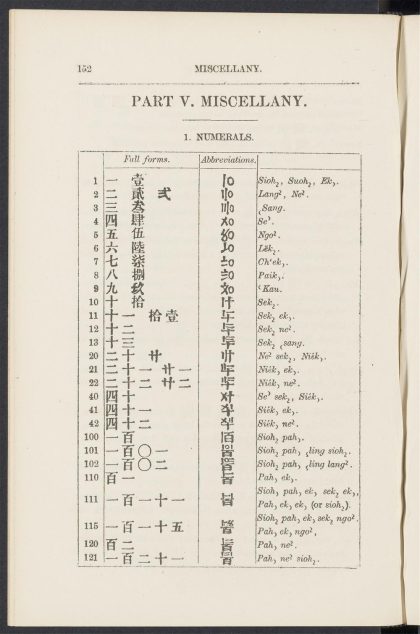 152 MISCELLANY.
PART V. MISCELLANY.
1. NUMERALS.
Full forms. Abbreviations.
1 一 壹 Sioh₂, Suoh₂, Ek,.
2 二 貳 弍 Lang², Ne².
3 三 叁 ˛Sang.
4 四 肆 Se⁾.
5 五 伍 Ngo².
6 六 陸 Lĕk₂.
7 七 柒 Ch'ek,.
8 八 捌 Paik,.
9 九 玖 ʿKau.
10 十 拾 Sek₂.
11 十一 拾壹 Sek₂ ek,.
12 十二 Sek₂ ne².
13 十三 Sek₂ ˛sang.
20 二十 廿 Ne² sek₂, Niĕk,.
21 二十一 廿一 Niĕk, ek,.
22 二十二 廿二 Niĕk, ne².
40 四十 Se⁾ sek₂, Siĕk,.
41 四十一 Siĕk, ek,.
42 四十二 Siĕk, ne².
100 一百 Sioh₂ pah,.
101 一百〇一 Sioh₂ pah, ˛ling sioh₂.
102 一百〇二 Sioh₂ pah, ˛ling lang².
110 百一 Pah, ek,.
111 一百一十一 Sioh₂ pah, ek, sek₂ ek,,
Pah, ek, ek, (or sioh₂).
115 一百一十五 Sioh₂ pah, ek, sek₂ ngo².
Pah, ek, ngo².
120 百二 Pah, ne².
121 一百二十一 Pah, ne² sioh₂.